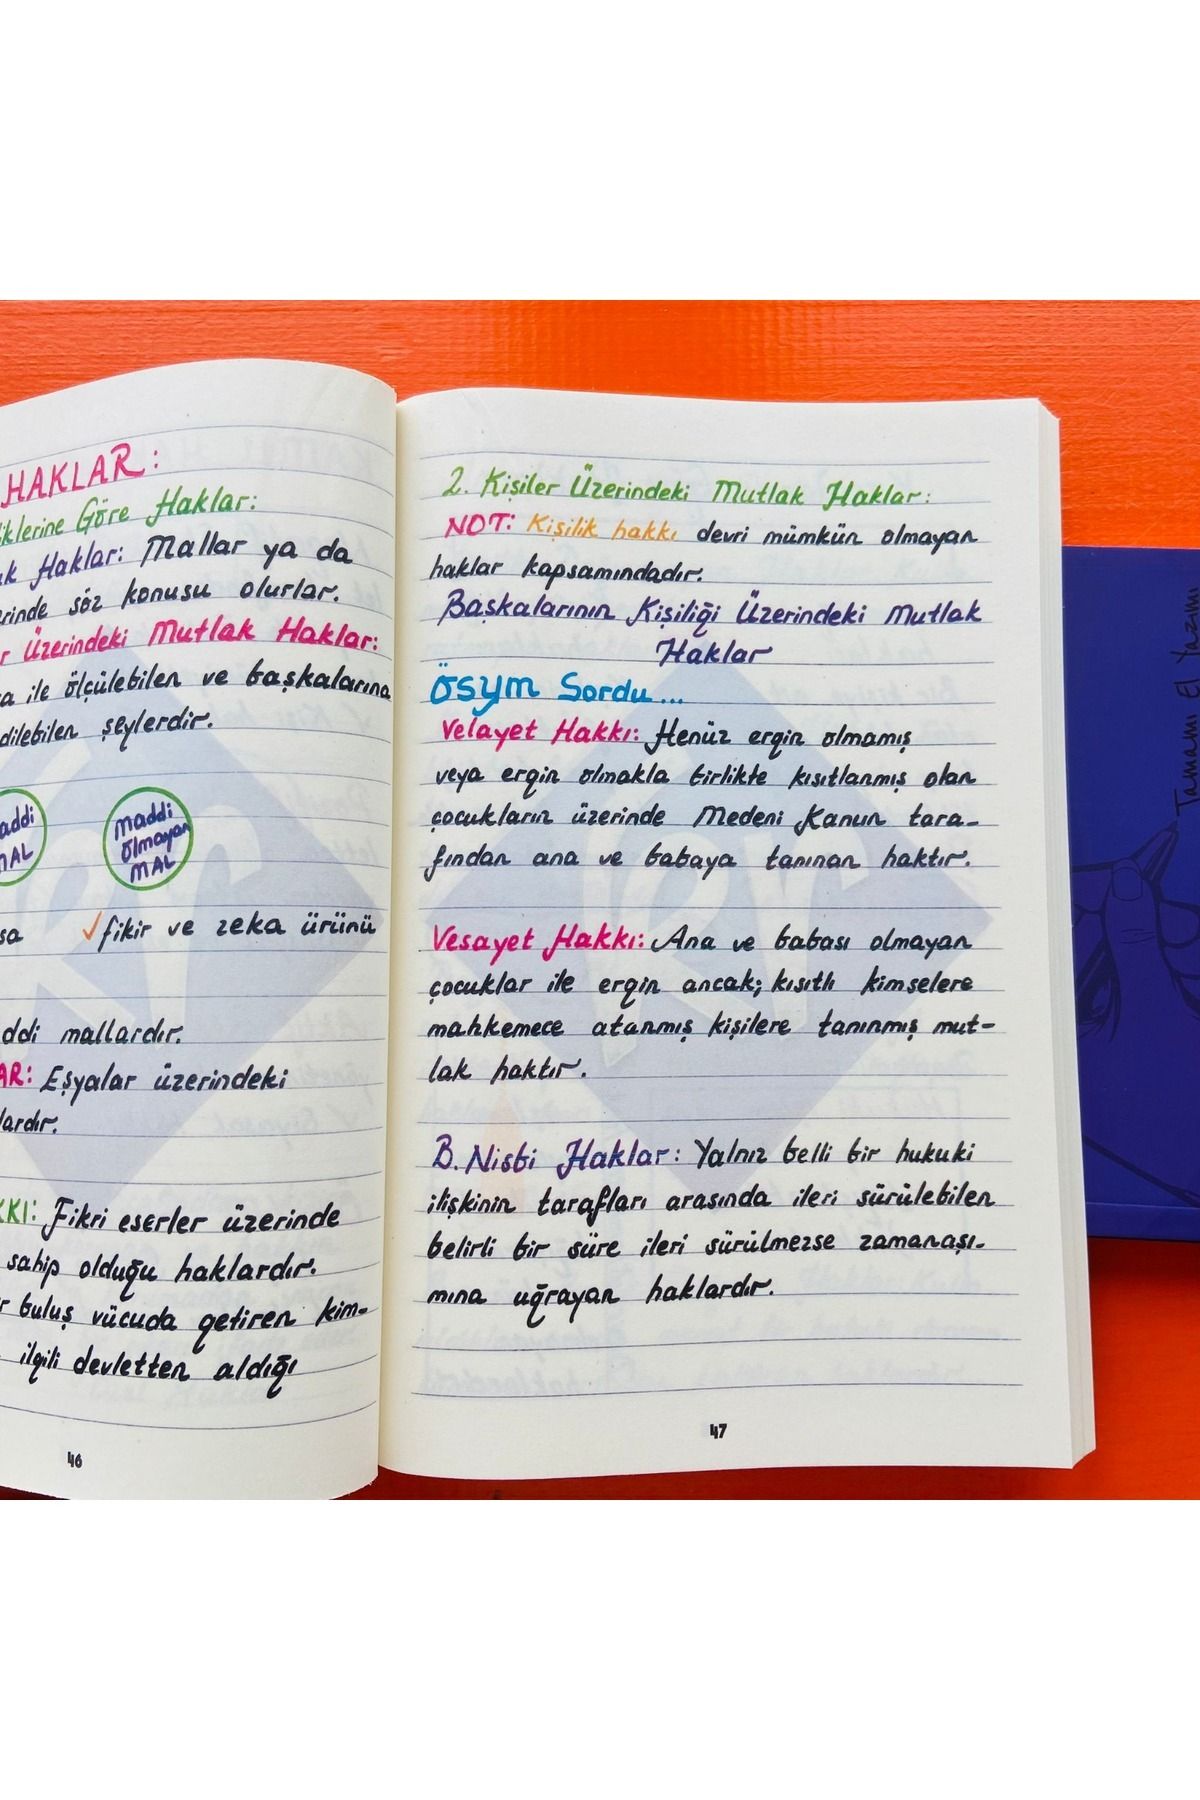 HAKLAR:
Göre Haklar:
Haklar: Mallar ya da
söz konusu olurlar.
Üzerindeki Mutlak Haklar:
ile ölçülebilen ve başkalarına
şeylerdir.
MAL
maddi
olmayan
MAL
✓fikir ve zeka ürünü
mallardır.
Eşyalar üzerindeki
Fikri eserler üzerinde
sahip olduğu haklardır.
buluş vücuda getiren kim-
ilgili devletten aldığı
46
2. Kişiler Üzerindeki Mutlak Haklar:
NOT: Kişilik hakkı devri mümkün olmayan
haklar kapsamındadır.
Başkalarının Kişiliği Üzerindeki Mutlak
Haklar
ÖSYM Sordu...
Velayet Hakkı: Henüz ergin olmamış
veya ergin olmakla birlikte kısıtlanmış olan
çocukların üzerinde Medeni Kanun tara-
fından ana ve babaya tanınan haktır.
Vesayet Hakkı: Ana ve babası olmayan
çocuklar ile ergin ancak; kısıtlı kimselere
mahkemece atanmış kişilere tanınmış mut-
lak haktır.
B. Nisbi Haklar: Yalnız belli bir hukuki
ilişkinin tarafları arasında ileri sürülebilen
belirli bir süre ileri sürülmezse zamanaşı-
mına uğrayan haklardır.
47
Tamamı El Yazımı